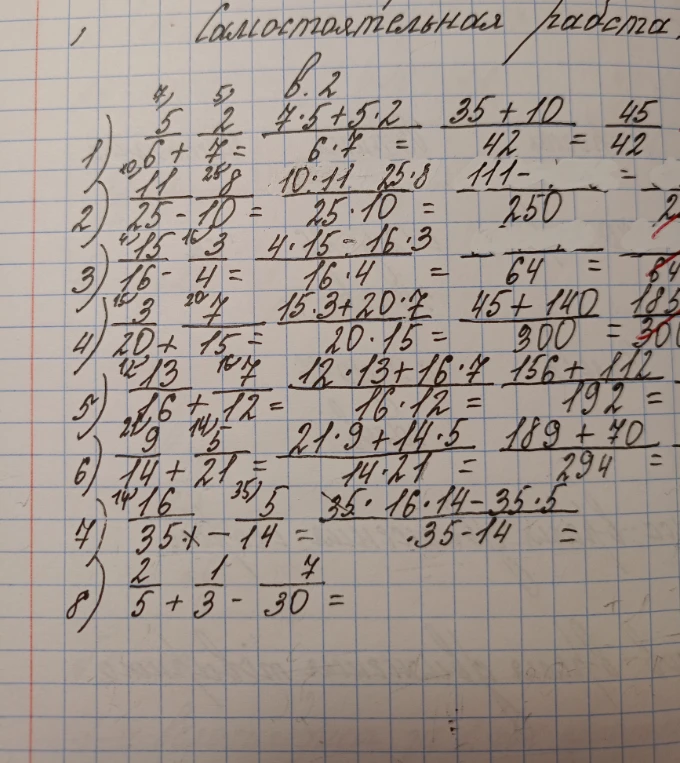 Самостоятельная работа.
в. 2
1) 7) 5/6 + 5) 2/7 = (7·5+5·2)/(6·7) = (35+10)/42 = 45/42
2) 10) 11/25 - 25) 8/10 = (10·11 25·8)/(25·10) = (111-)/250 =
3) 4) 15/16 - 16) 3/4 = (4·15-16·3)/(16·4) = /64 = /64
4) 15) 3/20 + 20) 7/15 = (15·3+20·7)/(20·15) = (45+140)/300 = 185/300
5) 12) 13/16 + 16) 7/12 = (12·13+16·7)/(16·12) = (156+112)/192 =
6) 21) 9/14 + 14) 5/21 = (21·9+14·5)/(14·21) = (189+70)/294 =
7) 14) 16/35 - 35) 5/14 = (35· 16·14-35·5)/(·35-14) =
8) 2/5 + 1/3 - 7/30 =